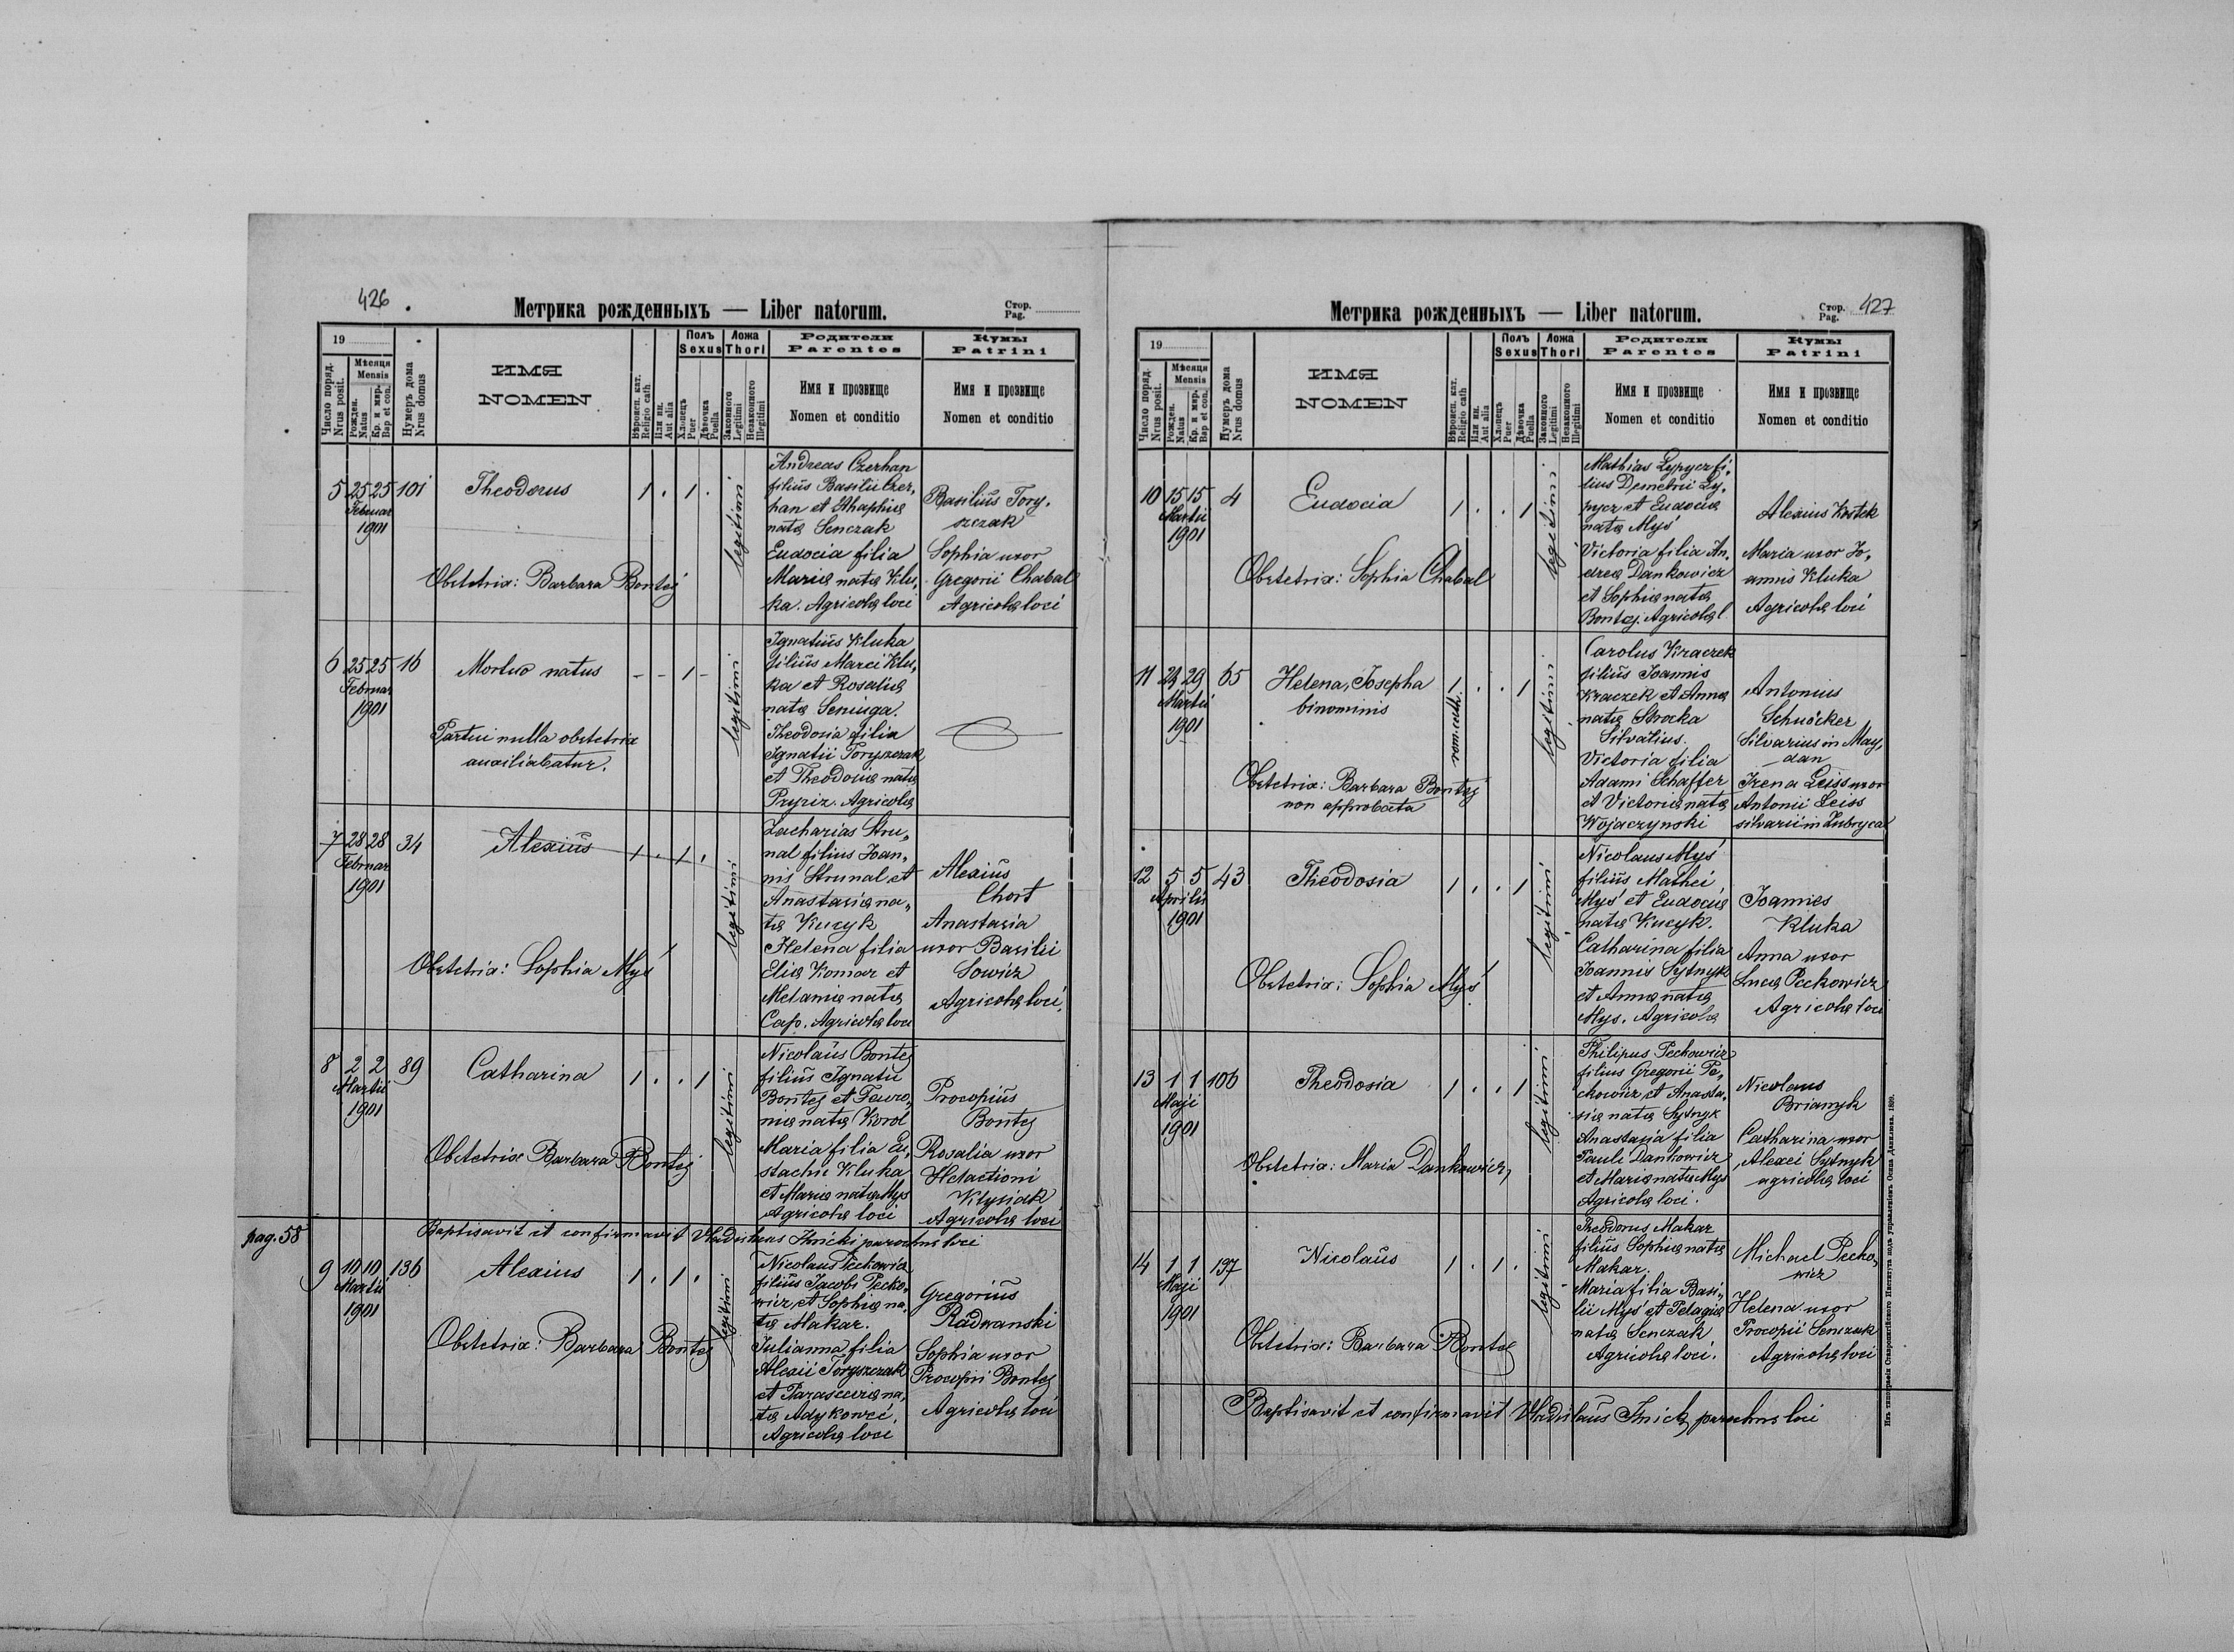 426
Метрика рожденныхъ — Liber natorum.
Стор.
Pag.
19
Число поряд.
Nrus posit.
Мѣсяця
Mensis
Рожден.
Natus
Кр. и мир.
Bap et con.
Нумеръ дома
Nrus domus
ИМЯ
NOMEN
Вѣроисп. кат.
Religio cath
Или ин.
Aut alia
Полъ
Sexus
Хлопецъ
Puer
Дѣвочка
Puella
Ложа
Thori
Законного
Legitimi
Незаконного
Illegitimi
Родители
Parentes
Имя и прозвище
Nomen et conditio
Кумы
Patrini
Имя и прозвище
Nomen et conditio
5 25 25 101 Theodorus 1 . 1 .
Februar
1901
Obstetrix: Barbara Bontej
legitimi
Andreas Czerhan
filius Basilii Czer„
han et Ahaphiæ
natæ Senczak
Eudocia filia
Mariæ natæ Klu„
ka. Agricolæ loci
Basilius Tory„
szczak
Sophia uxor
Gregorii Chabal
Agricolæ loci
6 25 25 16 Mortuo natus - - 1 -
Februar
1901
Partui nulla obstetrix
auxiliabatur.
legitimi
Ignatius Kluka
filius Marci Klu„
ka et Rosaliæ
natæ Seniuga.
Theodosia filia
Ignatii Toryszczak
et Theodosiæ natæ
Pryriz. Agricolæ
7 28 28 34 Alexius 1 . 1 .
Februar
1901
Obstetrix: Sophia Myś
legitimi
Zacharias Stru„
nal filius Joan„
nis Strunal et
Anastasiæ na„
tæ Kucyk
Helena filia
Eliæ Komar et
Melaniæ natæ
Cap. Agricolæ loci
Alexius
Chort
Anastasia
uxor Basilii
Sowicz
Agricolæ loci.
8 2 2 89 Catharina 1 . . 1
Martii
1901
Obstetrix Barbara Bontej
legitimi
Nicolaus Bontej
filius Ignatii
Bontej et Fevro„
niæ natæ Korol
Maria filia Eu„
stachii Kluka
et Mariæ natæ Mys
Agricolæ loci
Procopius
Bontej
Rosalia uxor
Helactioni
Klysiak
Agricolæ loci
pag. 58
Baptisavit et confirmavit Vladislaus Ilnicki parochus loci
9 10 10 136 Alexius 1 . 1 .
Martii
1901
Obstetrix: Barbara Bontej
legitimi
Nicolaus Peckowicz
filius Jacobi Pecko„
wicz, et Sophiæ na„
tæ Makar.
Julianna filia
Alexii Toryszczak
et Parasceviæ na„
tæ Adykowci.
Agricolæ loci
Gregorius
Radwanski
Sophia uxor
Procopii Bontej
Agricolæ loci
Метрика рожденныхъ — Liber natorum.
Стор.
Pag.
427
19
Число поряд.
Nrus posit.
Мѣсяця
Mensis
Рожден.
Natus
Кр. и мир.
Bap et con.
Нумеръ дома
Nrus domus
ИМЯ
NOMEN
Вѣроисп. кат.
Religio cath
Или ин.
Aut alia
Полъ
Sexus
Хлопецъ
Puer
Дѣвочка
Puella
Ложа
Thori
Законного
Legitimi
Незаконного
Illegitimi
Родители
Parentes
Имя и прозвище
Nomen et conditio
Кумы
Patrini
Имя и прозвище
Nomen et conditio
10 15 15 4 Eudocia 1 . . 1
Martii
1901
Obstetrix: Sophia Chabal
legitimi
Mathias Lypycz fi„
lius Demetrii Ly„
pycz et Eudociæ
natæ Myś
Victoria filia An„
dreæ Dankowicz
et Sophiæ natæ
Bontej. Agricolæ l
Alexius Kostek
Maria uxor Jo„
annis Kluka
Agricolæ loci
11 29 29 65 Helena, Josepha 1 . . 1
Martii binominis
1901
rom. cath.
Obstetrix: Barbara Bontej
non approbata
legitimi
Carolus Kraczek
filius Joannis
Kraczek et Annæ
natæ Strocka
Silvatius.
Victoria filia
Adami Schaffer
et Victoriæ natæ
Wojaczynski
Antonius
Schuöcker
Silvarius in May„
dan
Irena Leiss uxor
Antonii Leiss
silvarii in Zubryca
12 5 5 43 Theodosia 1 . . 1
Aprilis
1901
Obstetrix: Sophia Myś
legitimi
Nicolaus Myś
filius Mathei
Myś et Eudociæ
natæ Kucyk.
Catharina filia
Joannis Sytnyk
et Annæ natæ
Mys. Agricolæ
Joannes
Kluka
Anna uxor
Lucæ Peckowicz
Agricolæ loci
13 1 1 106 Theodosia 1 . . 1
Maji
1901
Obstetrix: Maria Dankowicz,
legitimi
Philipus Peckowicz
filius Gregorii Pe„
ckowicz, et Anasta„
siæ natæ Sytnyk
Anastasia filia
Pauli Dankowicz
et Mariæ natæ Mys
Agricolæ loci.
Nicolaus
Brianyk
Catharina uxor
Alexei Sytnyk
agricolæ loci
14 1 1 137 Nicolaus 1 . 1 .
Maji
1901
Obstetrix: Barbara Bontej
legitimi
Theodorus Makar
filius Sophiæ natæ
Makar.
Maria filia Basi„
lii Myś et Pelagiæ
natæ Senczak
Agricolæ loci.
Michael Pecko„
wicz
Helena uxor
Procopii Senczak
Agricolæ loci
Baptisavit et confirmavit Vladislaus Ilnicki parochus loci
Изъ типографіи Ставропигійского Института подъ управленіемъ Осипа Данилюка. 1899.